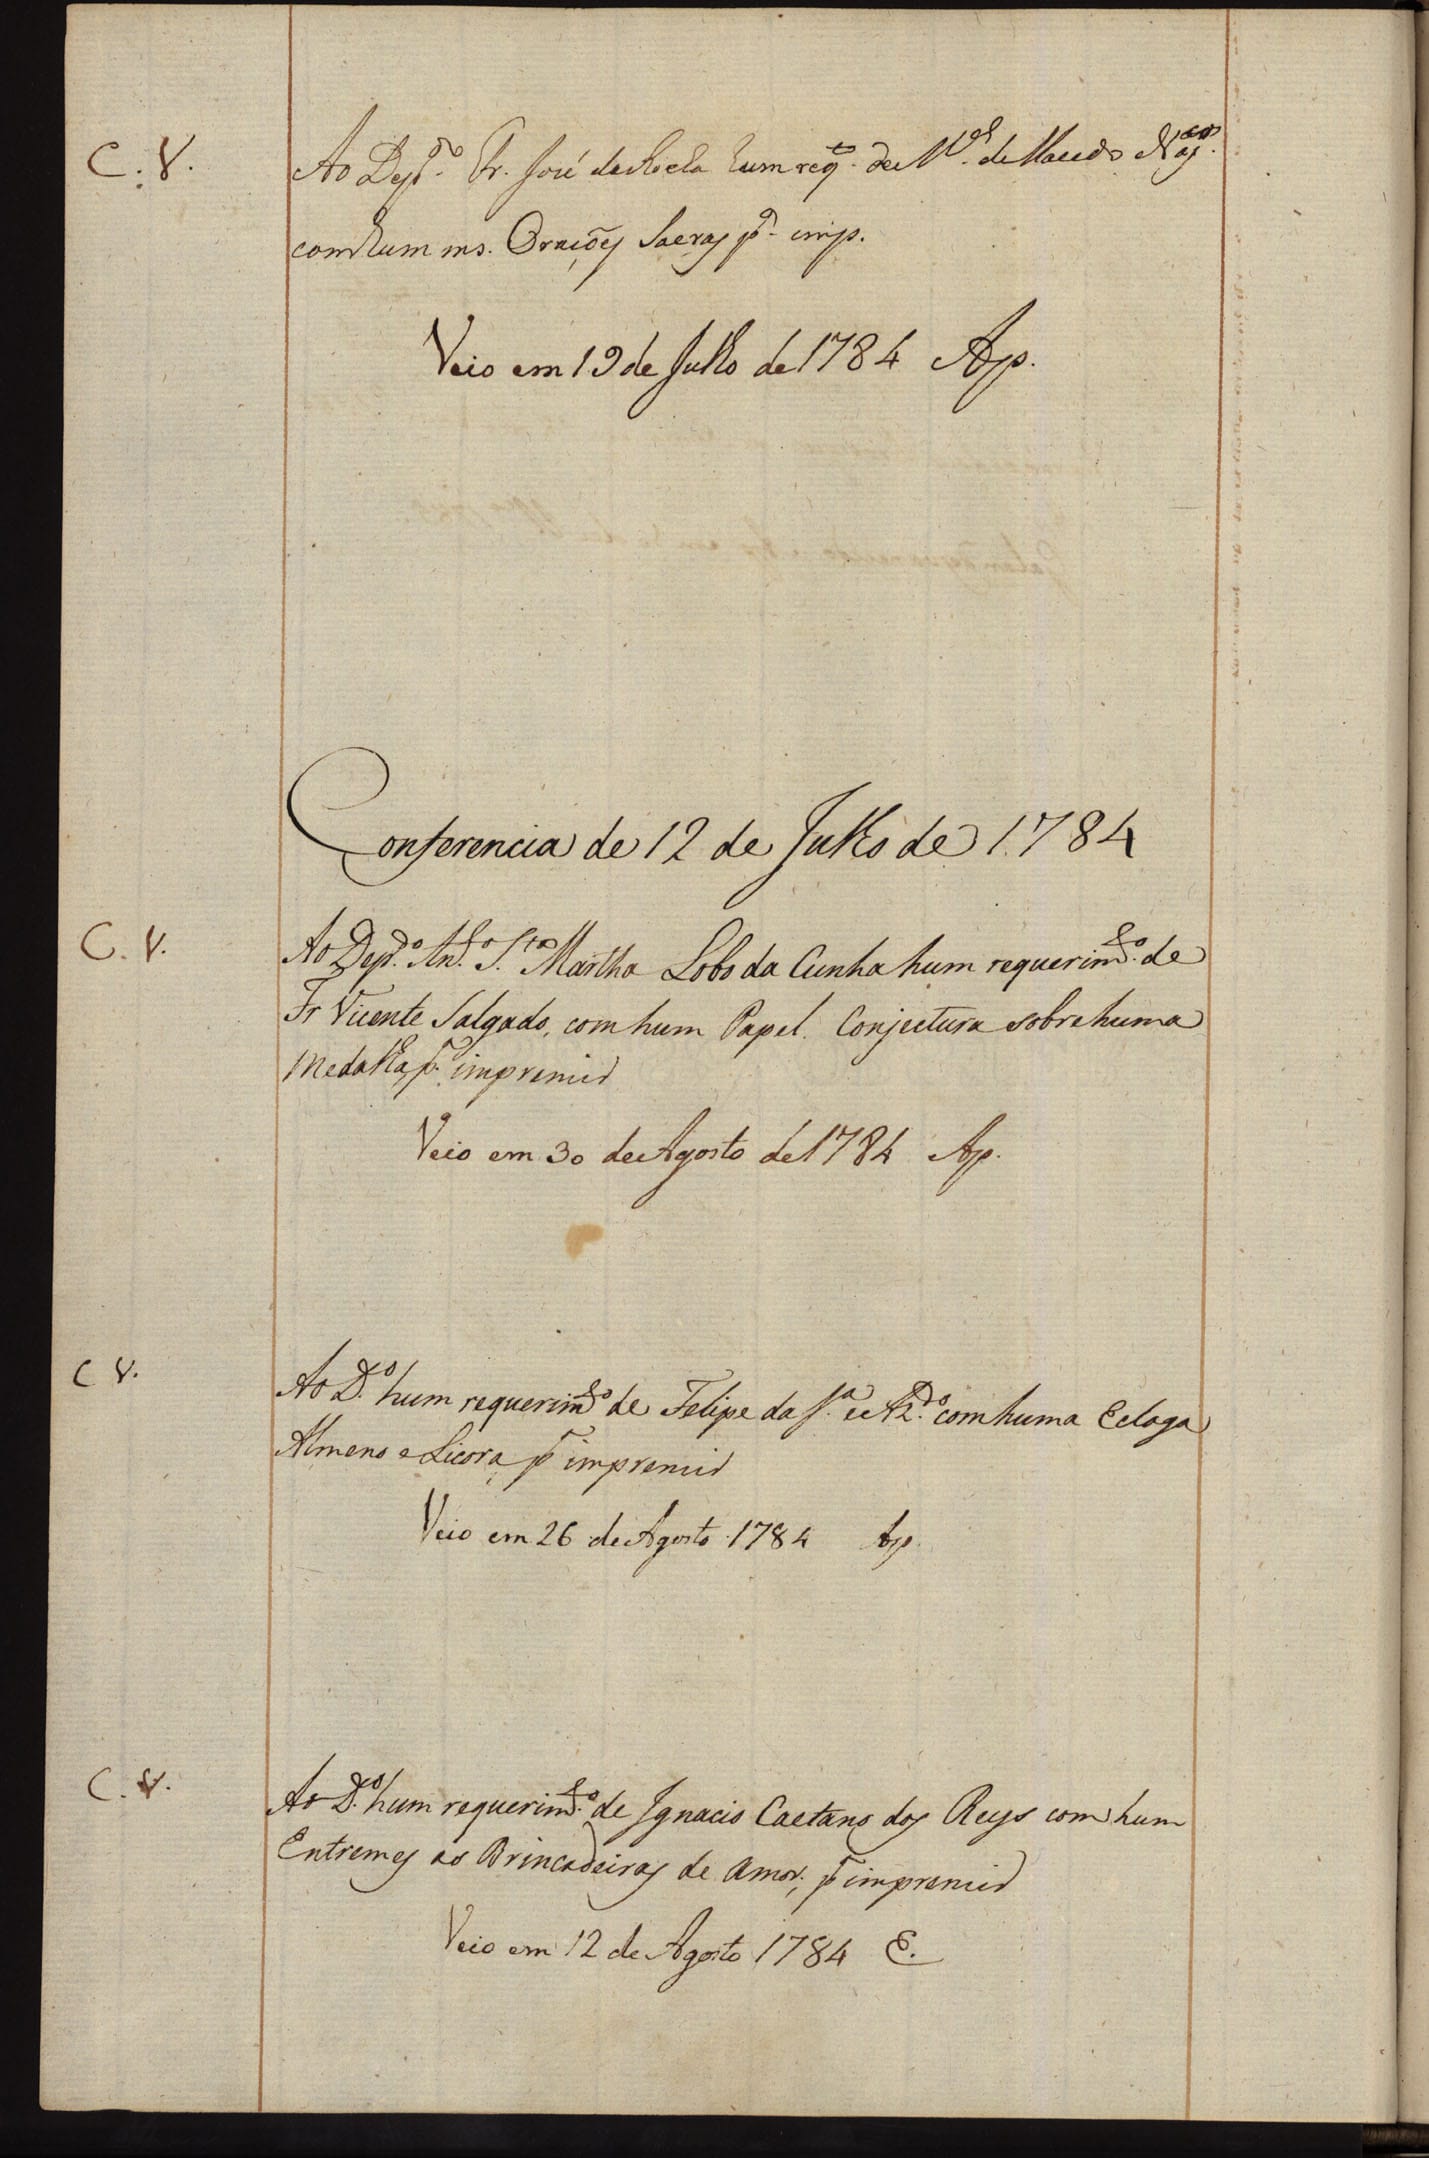 C. V.
Ao Dep.do Fr. José da Rocha hum req.to de M.el de Macedo
com hum ms. Oraçoẽs Sacras p.a imp.
Veio em 19 de Julho de 1784 Ap.
Conferencia de 12 de Julho de 1784
C. V.
Ao Dep.do An.to S.ta Martha Lobo da Cunha hum requerim.to de
Fr Vicente Salgado, com hum Papel. Conjectura sobre huma
Medalha, p.a imprimir
Veio em 30 de Agosto de 1784 Ap.
C V.
Ao D.o hum requerim.to de Felipe da S.a e Az.do com huma Ecloga
Almeno e Licora p.a imprimir
Veio em 26 de Agosto 1784 Ap
C. V.
Ao D.o hum requerim.to de Ignacio Caetano dos Reys com hum
Entremes as Brincadeiras de Amor, p.a imprimir
Veio em 12 de Agosto 1784 E.